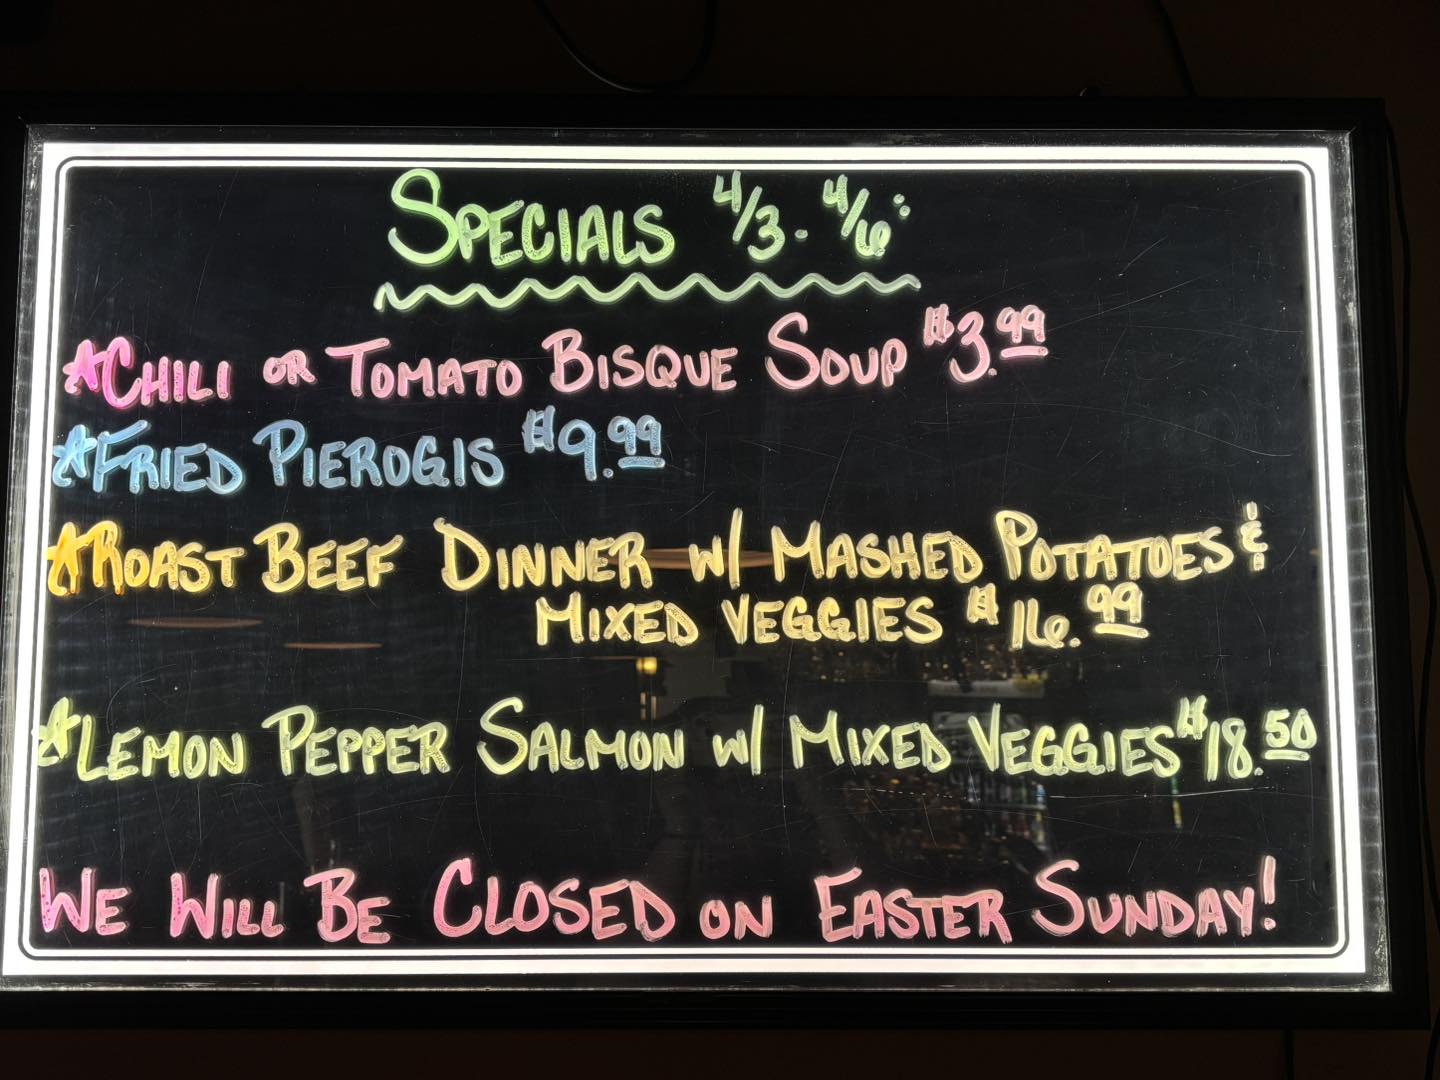 SPECIALS 4/3 - 4/6:
☆CHILI OR TOMATO BISQUE SOUP $3.99
☆FRIED PIEROGIS $9.99
☆ROAST BEEF DINNER W/ MASHED POTATOES &
MIXED VEGGIES $16.99
☆LEMON PEPPER SALMON W/ MIXED VEGGIES $18.50
WE WILL BE CLOSED ON EASTER SUNDAY!